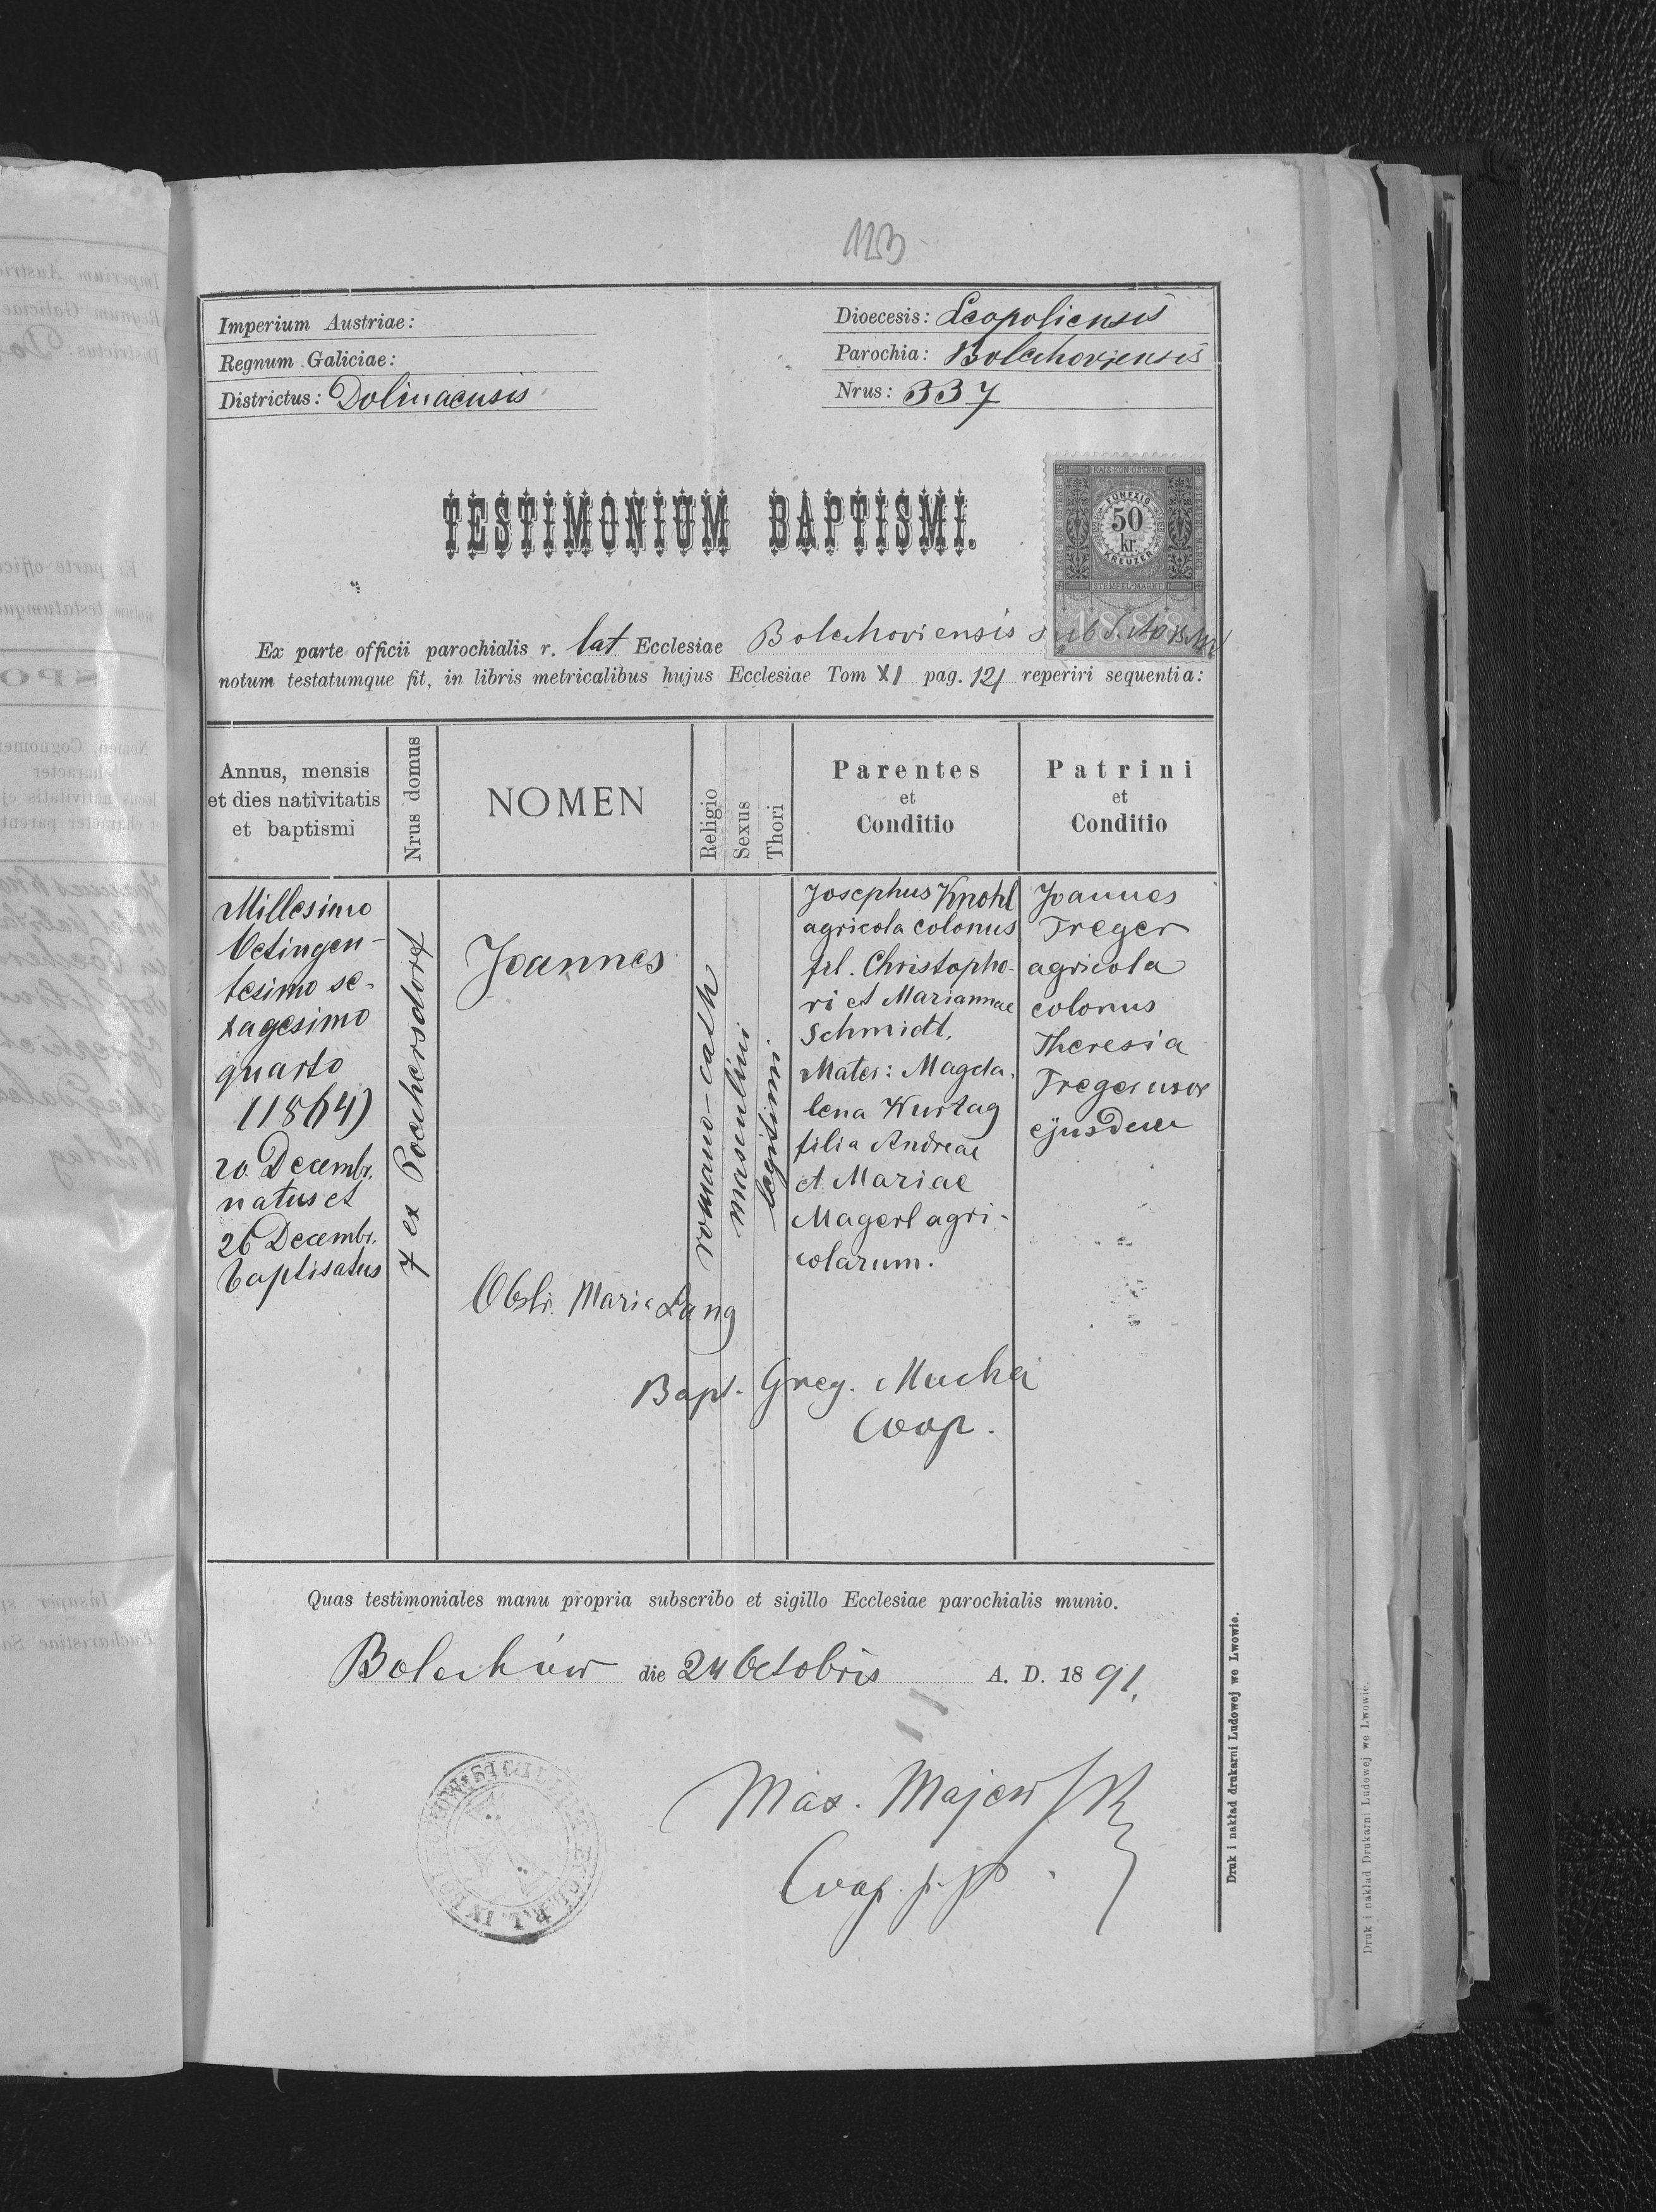 123
Imperium Austriae:
Regnum Galiciae:
Districtus: Dolinaensis
Dioecesis: Leopoliensis
Parochia: Bolechoviensis
Nrus: 337
KAIS. KÖN. ÖSTERR.
FÜNFZIG
50
kr.
KREUZER
STEMPEL-MARKE
1888
TESTIMONIUM BAPTISMI.
Ex parte officii parochialis r. lat Ecclesiae Bolechoviensis sub
notum testatumque fit, in libris metricalibus hujus Ecclesiae Tom XI pag. 121 reperiri sequentia:
Annus, mensis
et dies nativitatis
et baptismi
Nrus domus
NOMEN
Religio
Sexus
Thori
Parentes
et
Conditio
Patrini
et
Conditio
Millesimo
Octingen-
tesimo se-
xagesimo
quarto
(1864)
20 Decembr.
natus et
26 Decembr.
baptisatus
7 ex Pochersdorf
Joannes
romano-cath
masculini
legitimi
Josephus Knohl
agricola colonus
fil. Christopho-
ri et Mariannae
Schmidt,
Mater: Magda-
lena Wurtag
filia Andreae
et Mariae
Magerl agri-
colarum.
Joannes
Treger
agricola
colonus
Theresia
Treger uxor
ejusdem
Obstr. Maria Lang
Bapt. Greg. Mucha
Coop.
Quas testimoniales manu propria subscribo et sigillo Ecclesiae parochialis munio.
Bolechów die 24 Octobris A. D. 1891.
Max. Majewski
Coop.
Druk i nakład drukarni Ludowej we Lwowie.
Druk i nakład Drukarni Ludowej we Lwowie.